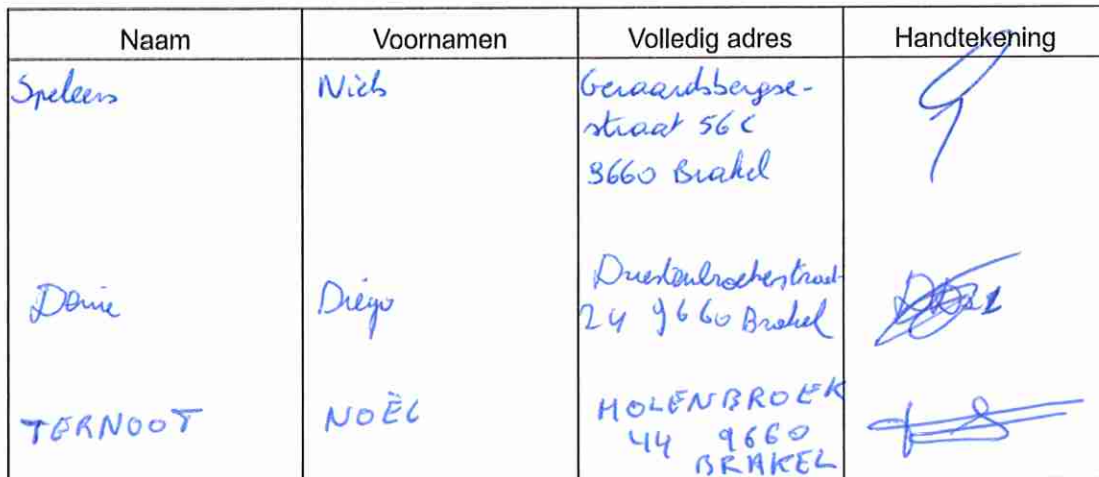 Naam Voornamen Volledig adres Handtekening
Speleers Niels Geraardsbergse-
straat 56 C
9660 Brakel
Diego
24 9660 Brakel
TERNOOT NOËL HOLENBROEK
44 9660
BRAKEL